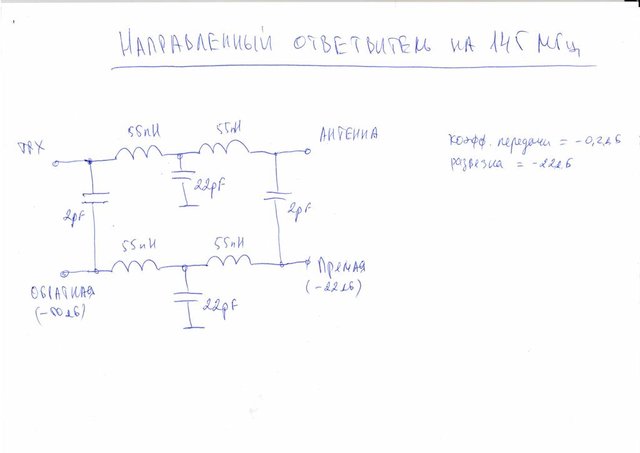 НАПРАВЛЕННЫЙ ОТВЕТВИТЕЛЬ НА 145 МГЦ
55nH
55nH
АНТЕННА
TRX
22pF
2pF
2pF
55nH
55nH
ОБРАТНАЯ
(-60дБ)
22pF
ПРЯМАЯ
(-22дБ)
коэфф. передачи = -0,2дБ
развязка = -22дБ